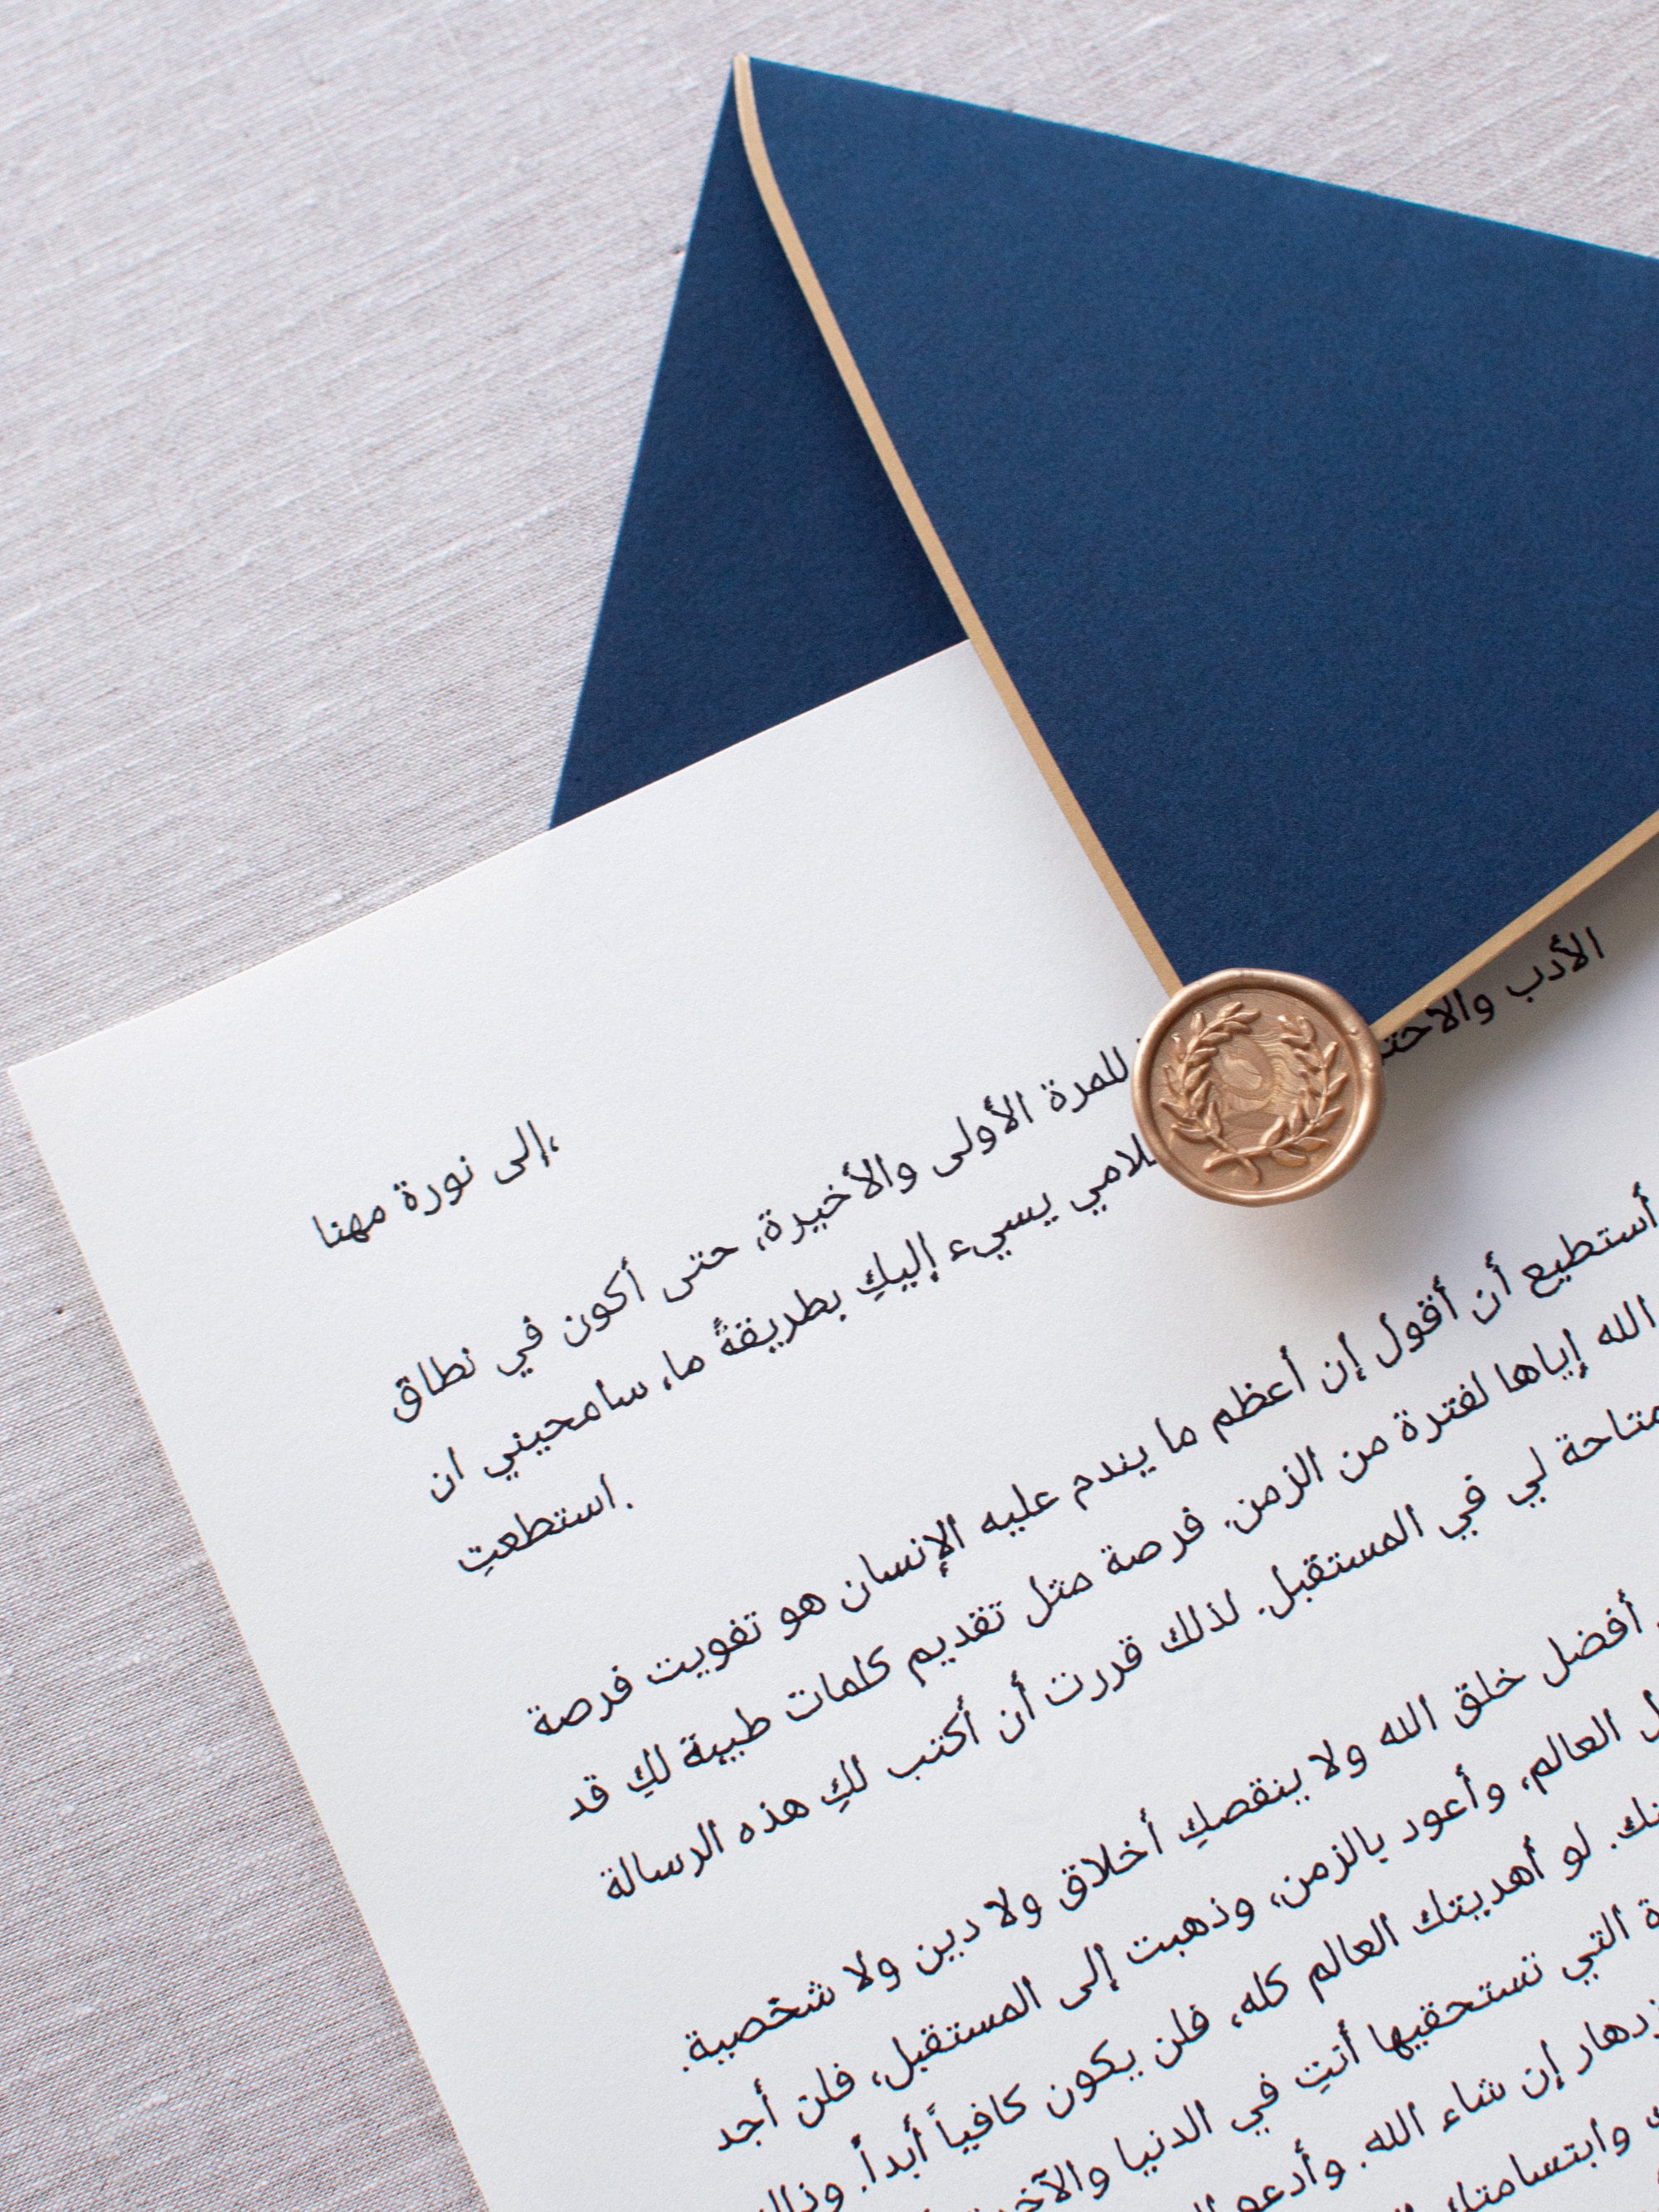 إلى نورة مهنا،
الأدب والاحت للمرة الأولى والأخيرة، حتى أكون في نطاق
يسيء إليكِ بطريقةً ما، سامحيني ان
استطعتِ.
أستطيع أن أقول إن أعظم ما يندم عليه الإنسان هو تفويت فرصة
الله إياها لفترة من الزمن. فرصة مثل تقديم كلمات طيبة لكِ قد
متاحة لي في المستقبل. لذلك قررت أن أكتب لكِ هذه الرسالة
أفضل خلق الله ولا ينقصكِ أخلاق ولا دين ولا شخصية.
العالم، وأعود بالزمن، وذهبت إلى المستقبل، فلن أجد
لو أهديتك العالم كله، فلن يكون كافياً أبداً.
التي تستحقيها أنتِ في الدنيا
إن شاء الله. وأدعو
وابتسامتك